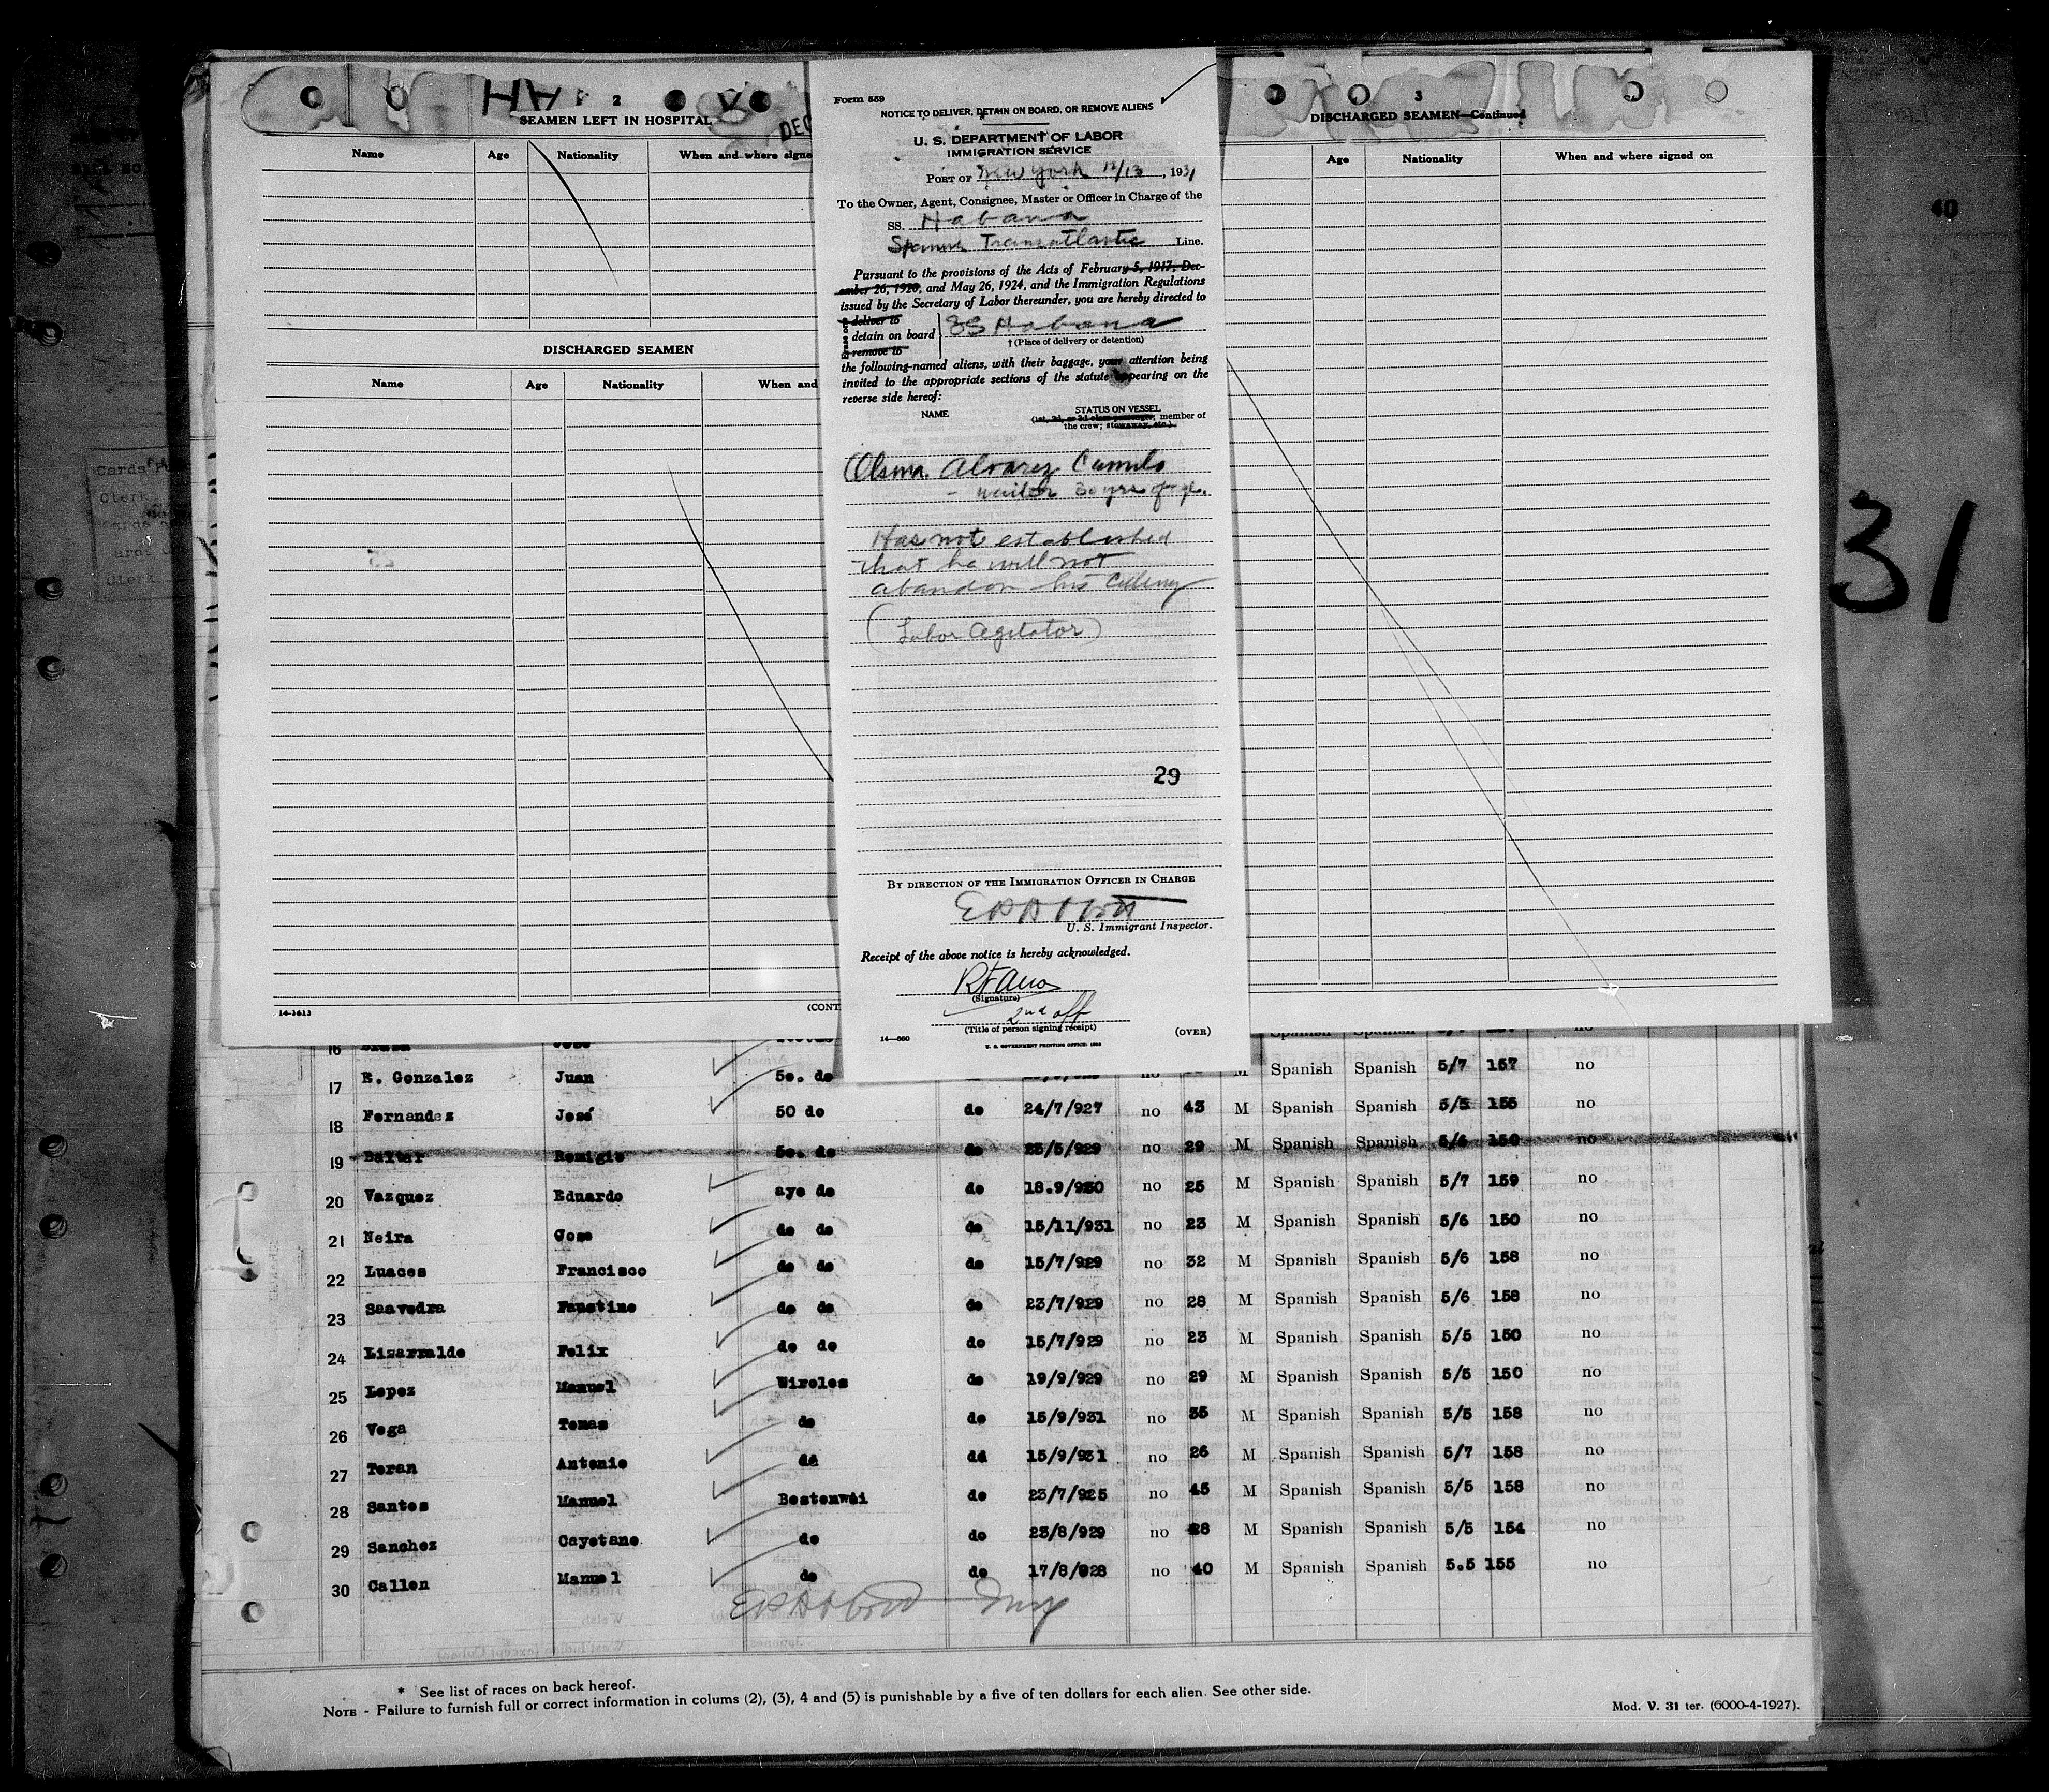 2
SEAMEN LEFT IN HOSPITAL
DEC
Name Age Nationality When and where signe
DISCHARGED SEAMEN
Name Age Nationality When and
14-1613
(CONT
Form 559
NOTICE TO DELIVER, DETAIN ON BOARD, OR REMOVE ALIENS
U. S. DEPARTMENT OF LABOR
IMMIGRATION SERVICE
PORT OF New York 12/13, 1931
To the Owner, Agent, Consignee, Master or Officer in Charge of the
SS. Habana
Spanish Transatlantic Line.
Pursuant to the provisions of the Acts of February 5, 1917, Dec-
ember 26, 1920, and May 26, 1924, and the Immigration Regulations
issued by the Secretary of Labor thereunder, you are hereby directed to
deliver to
detain on board SS Habana
remove to
† (Place of delivery or detention)
the following-named aliens, with their baggage, your attention being
invited to the appropriate sections of the statute appearing on the
reverse side hereof:
NAME STATUS ON VESSEL
(1st, 2d, or 3d class passenger, member of
the crew; stowaway, etc.)
Alvarez Camilo
- waiter 30 yrs of age.
Has not established
that he will not
abandon his calling
(Labor Agitator)
29
BY DIRECTION OF THE IMMIGRATION OFFICER IN CHARGE
U. S. Immigrant Inspector.
Receipt of the above notice is hereby acknowledged.
(Signature)
2nd off
(Title of person signing receipt)
14—560 (OVER)
U. S. GOVERNMENT PRINTING OFFICE
3
DISCHARGED SEAMEN—Continued
Age Nationality When and where signed on
40
31
Cards
Clerk
Clerk
16
17 E. Gonzalez Juan 5o. de M Spanish Spanish 5/7 157 no
18 Fernandez José 50 do do 24/7/927 no 43 M Spanish Spanish 5/5 155 no
19 Baltar Remigio 5o. do do 25/5/929 no 29 M Spanish Spanish 5/6 150 no
20 Vazquez Eduardo ayo do do 18.9/930 no 25 M Spanish Spanish 5/7 159 no
21 Neira Jose do do do 15/11/931 no 23 M Spanish Spanish 5/6 150 no
22 Luaces Francisco do do do 15/7/929 no 32 M Spanish Spanish 5/6 158 no
23 Saavedra Faustino do do do 23/7/929 no 28 M Spanish Spanish 5/6 158 no
24 Lizarralde Felix do do do 15/7/929 no 23 M Spanish Spanish 5/5 150 no
25 Lopez Manuel Wireles do 19/9/929 no 29 M Spanish Spanish 5/5 150 no
26 Vega Tomas do do 15/9/931 no 35 M Spanish Spanish 5/5 158 no
27 Teran Antonio dd dd 15/9/931 no 26 M Spanish Spanish 5/7 158 no
28 Santos Manuel Bostonwái do 23/7/925 no 45 M Spanish Spanish 5/5 158 no
29 Sanchez Cayetano do do 23/8/929 no 28 M Spanish Spanish 5/5 154 no
30 Callon Manuel do do 17/8/928 no 40 M Spanish Spanish 5.5 155 no
* See list of races on back hereof.
NOTE - Failure to furnish full or correct information in colums (2), (3), 4 and (5) is punishable by a five of ten dollars for each alien. See other side.
Mod. V. 31 ter. (6000-4-1927).